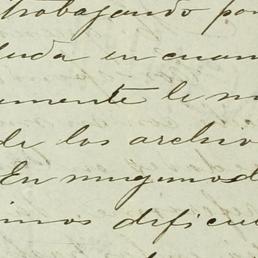 trabajando por
duda en cuan
mente le m
de los archivo
En ninguno d
imos dificul